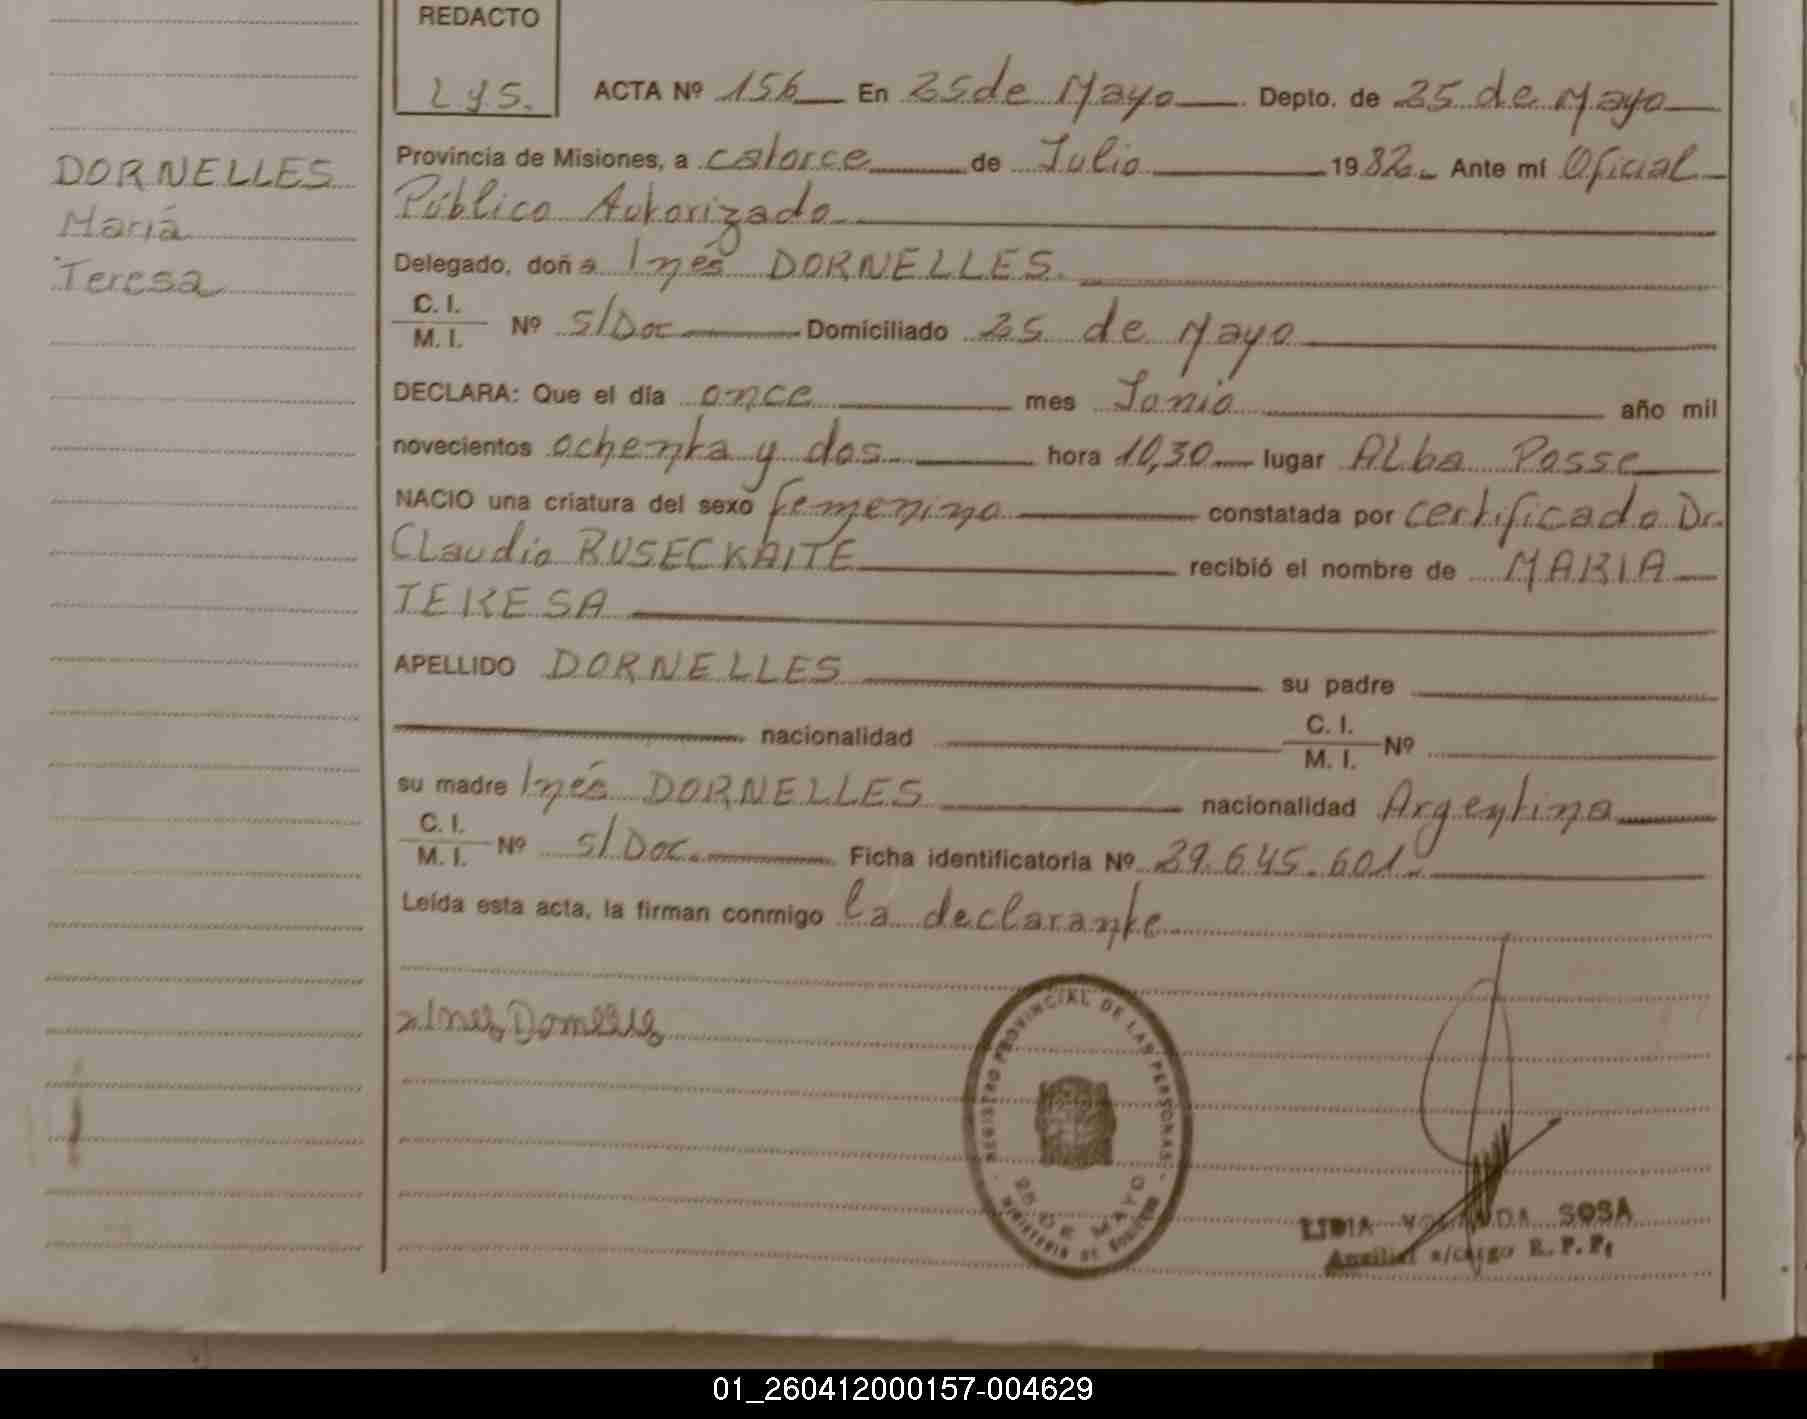 REDACTO
L y S.
ACTA Nº 156 En 25 de Mayo Depto. de 25 de Mayo
Provincia de Misiones, a catorce de Julio 1982. Ante mí Oficial
Público Autorizado
Delegado, doña Inés DORNELLES.
C. I.
M. I. Nº S/Doc Domiciliado 25 de Mayo
DECLARA: Que el día once mes Junio año mil
novecientos ochenta y dos hora 10,30 lugar ALba Posse
NACIO una criatura del sexo femenino constatada por certificado Dr.
CLaudio RUSECKAITE recibió el nombre de MARIA
TERESA
APELLIDO DORNELLES su padre
nacionalidad C. I.
M. I. Nº
su madre Inés DORNELLES nacionalidad Argentina
C. I.
M. I. Nº s/Doc. Ficha identificatoria Nº 29.645.601.
Leída esta acta, la firman conmigo la declarante
DORNELLES
María
Teresa
x Ines Dornelles
REGISTRO PROVINCIAL DE LAS PERSONAS
25 DE MAYO
MINISTERIO DE GOBIERNO
LIDIA YOLANDA SOSA
Auxiliar a/cargo R. P. P.
01_260412000157-004629